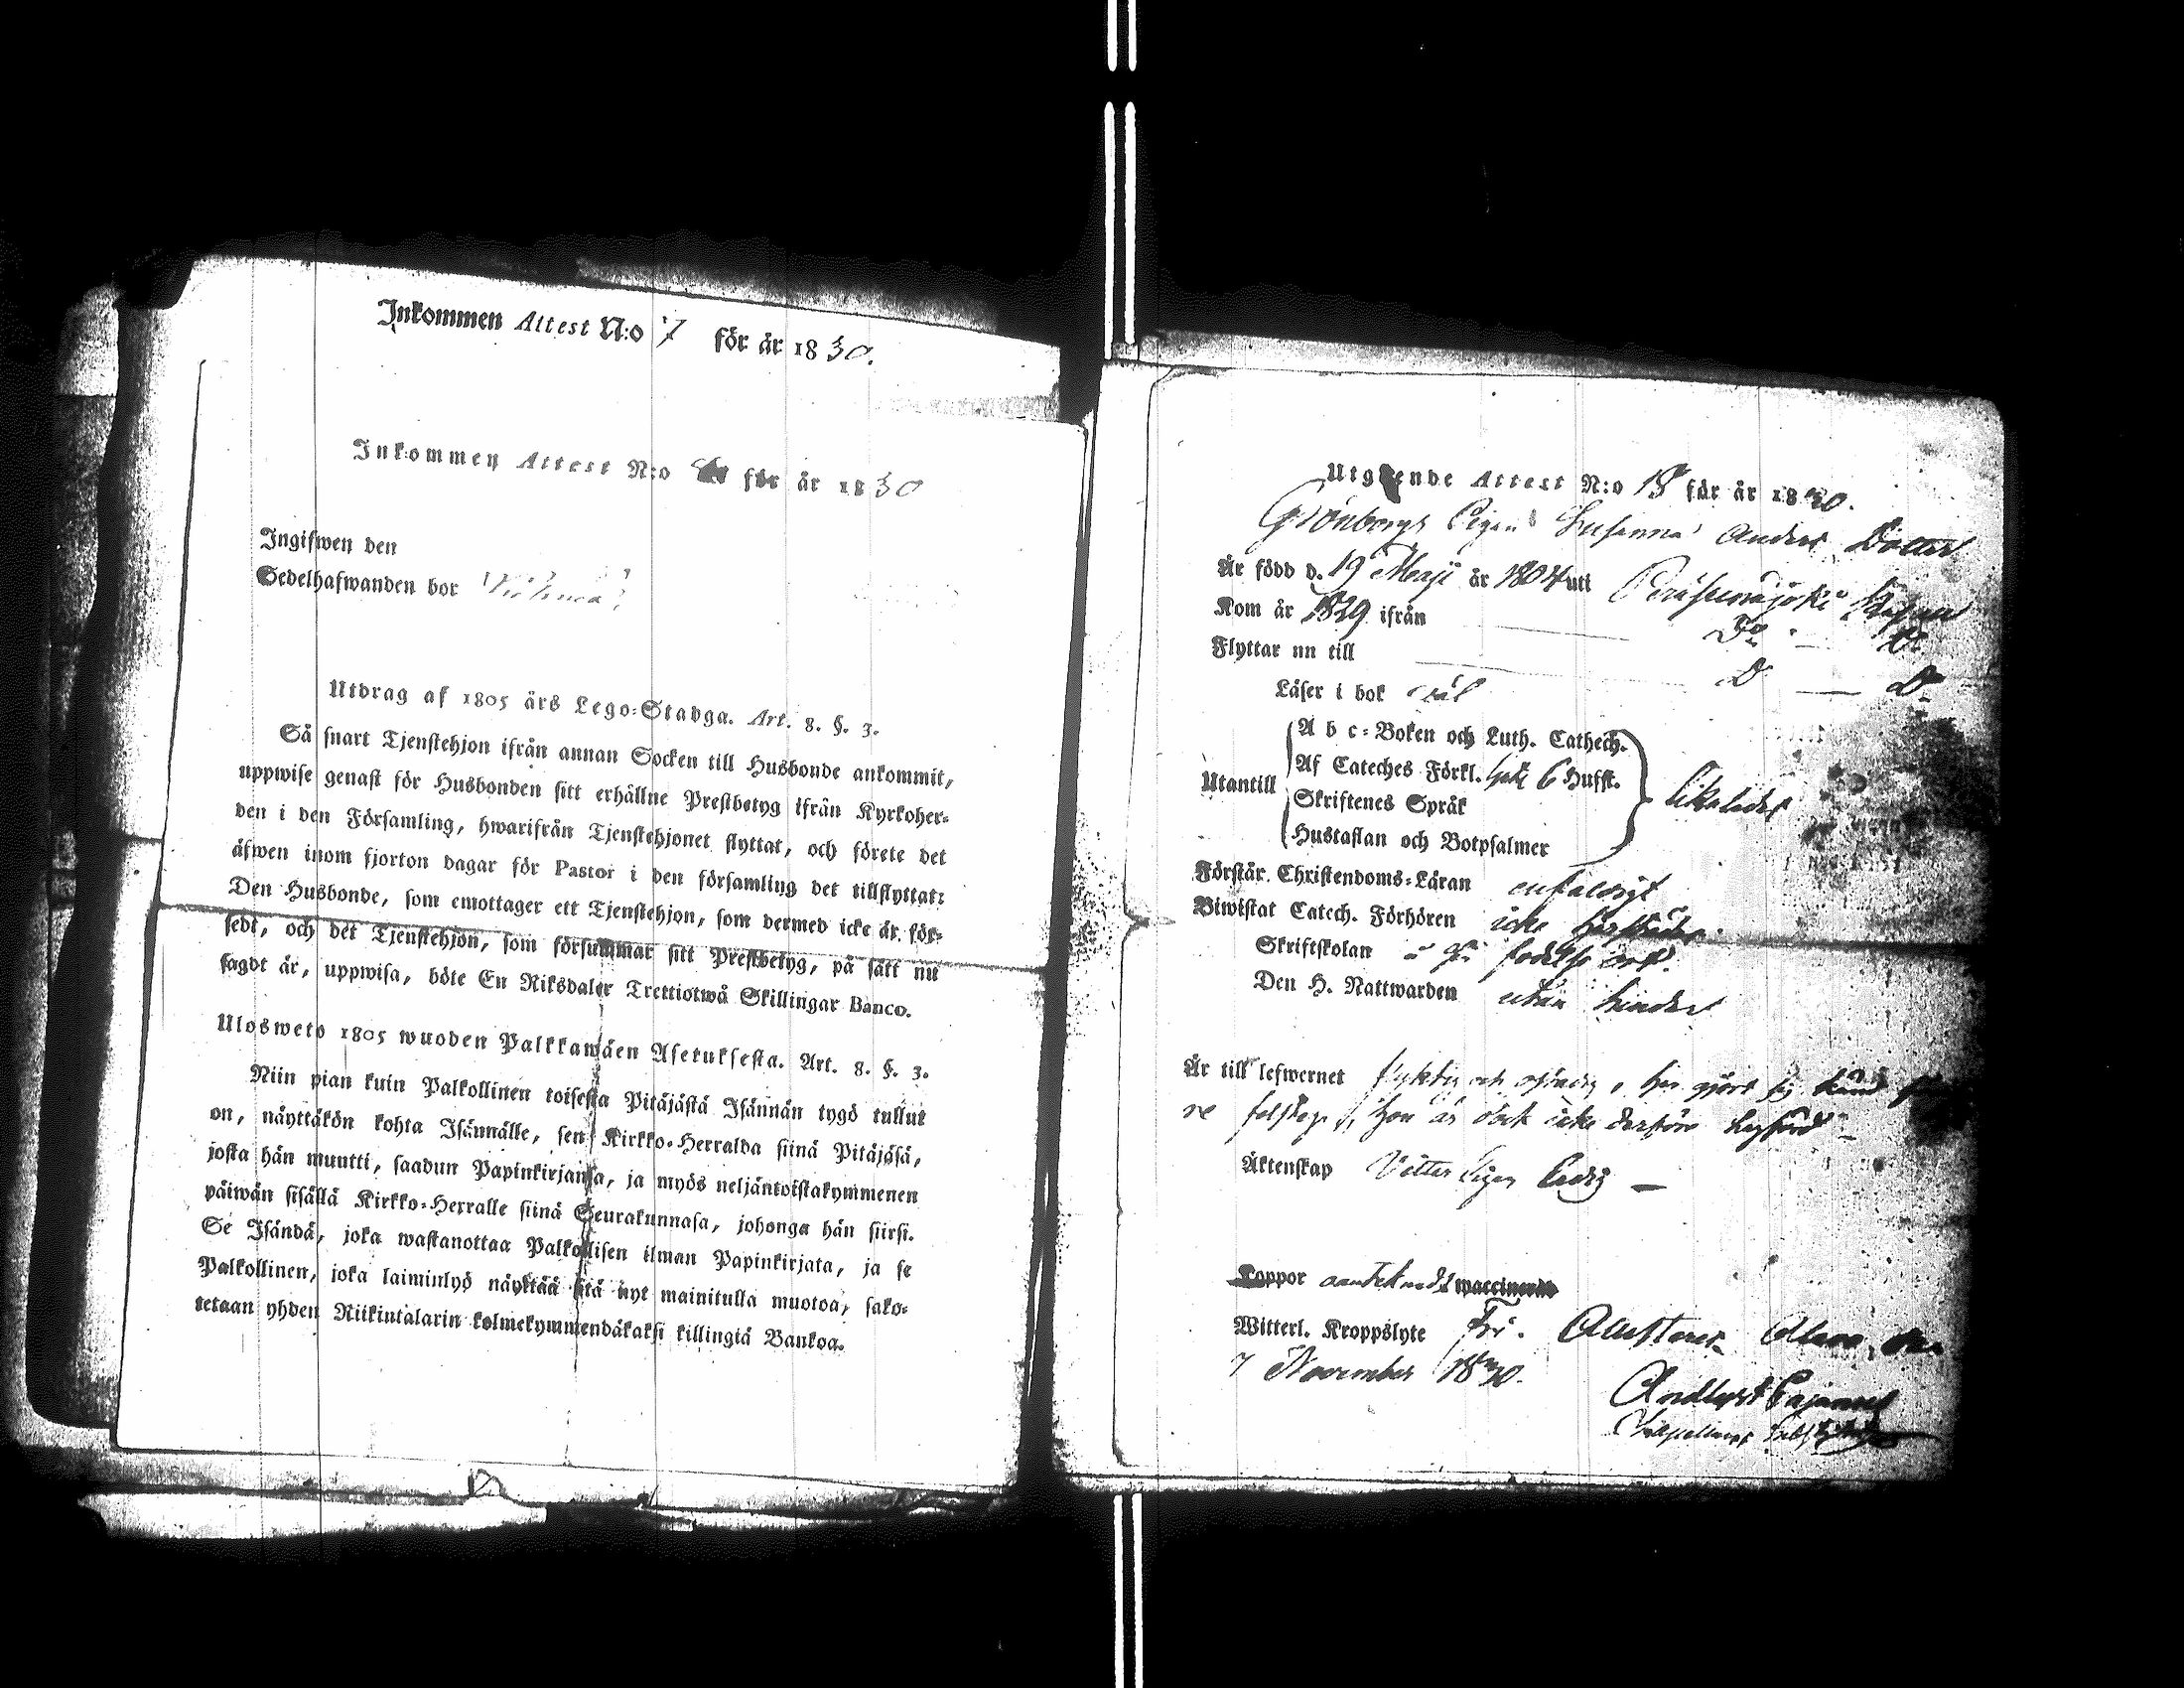 Inkommen Attest N:o 7 för år 1830.
Inkommen Attest N:o för år 1830
Ingifwen den
Sedelhafwanden bor
Utdrag af 1805 års Lego-Stadga. Art. 8. §. 3.
Så snart Tjenstehjon ifrån annan Socken till Husbonde ankommit,
uppwise genast för Husbonden sitt erhållne Prestbetyg ifrån Kyrkoher-
den i den Församling, hwarifrån Tjenstehjonet flyttat, och förete det
äfwen inom fjorton dagar för Pastor i den församling det tillflyttat:
Den Husbonde, som emottager ett Tjenstehjon, som dermed icke är för-
sedt, och det Tjenstehjon, som försummar sitt Prestbetyg, på sätt nu
sagdt är, uppwisa, böte En Riksdaler Trettiotwå Skillingar Banco.
Ulosweto 1805 wuoden Palkkawäen Asetuksesta. Art. 8. §. 3.
Niin pian kuin Palkollinen toisesta Pitäjästä Isännän tygö tullut
on, näyttäkön kohta Isännälle, sen Kirkko-Herralda siinä Pitäjäsä,
josta hän muutti, saadun Papinkirjansa, ja myös neljäntoistakymmenen
päiwän sisällä Kirkko-Herralle siinä Seurakunnasa, johonga hän siirsi.
Se Isändä, joka wastanottaa Palkollisen ilman Papinkirjata, ja se
Palkollinen, joka laiminlyö näyttää sitä nyt mainitulla muotoa, sako-
tetaan yhden Riikintalarin kolmekymmendäkaksi killingiä Bankoa.
Utgående Attest N:o 18 för år 1830.
Grönborgs Pigan Susanna Anders Dotter
Är född d. 19 Maji år 1804 uti Peräseinäjoki
Kom år 1829 ifrån Do Do
Flyttar nu till Do Do
Läser i bok väl
Utantill
A b c-Boken och Luth. Cathech.
Af Cateches Förkl. 6 Hufst.
Skriftenes Språk
Hustaflan och Botpsalmer
likaledes
Förstår Christendoms-Läran enfaldigt
Biwistat Catech. Förhören icke
Skriftskolan å födelse ort.
Den H. Nattwarden utan hinder
Är till lefwernet och har gjort sig
Hon är dock icke derföre
Äktenskap Vitterligen ledig —
Koppor waccinerad
Witterl. Kroppslyte Fri. Alawo
7 November 1830.